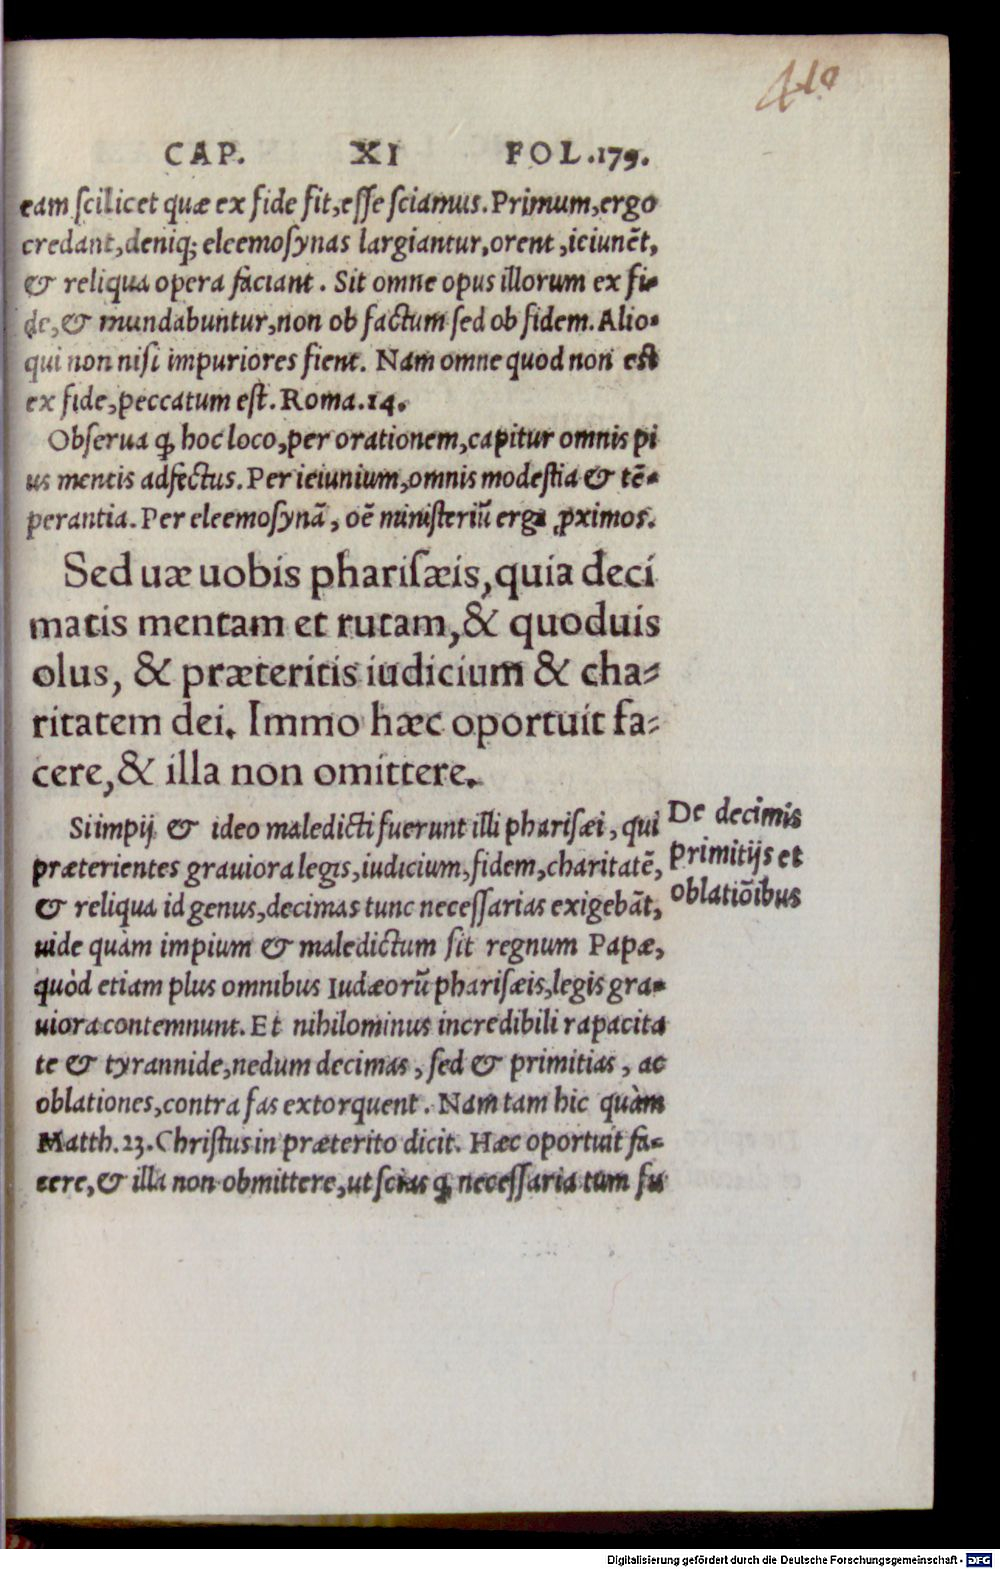 410
CAP. XI FOL.179.
eam ſcilicet quæ ex fide fit,eſſe ſciamus.Primum,ergo
credant,deniq; eleemoſynas largiantur,orent,ieiunẽt,
& reliqua opera faciant. Sit omne opus illorum ex fi-
de,& mundabuntur,non ob factum ſed ob fidem.Alio-
qui non niſi impuriores fient. Nam omne quod non est
ex fide,peccatum eſt.Roma.14.
Obſerua ꝙ hoc loco,per orationem,capitur omnis pi
us mentis adfectus. Per ieiunium,omnis modeſtia & tẽ-
perantia. Per eleemoſynã, oẽ miniſteriũ erga ꝓximos.
Sed uæ uobis phariſæis,quia deci
matis mentam et rutam,& quoduis
olus, & præteritis iudicium & cha-
ritatem dei. Immo hæc oportuit fa-
cere,& illa non omittere.
Si impij & ideo maledicti fuerunt illi phariſæi, qui
præterientes grauiora legis,iudicium,fidem,charitatẽ,
& reliqua id genus,decimas tunc neceſſarias exigebãt,
uide quàm impium & maledictum ſit regnum Papæ,
quòd etiam plus omnibus Iudæorũ phariſæis,legis gra-
uiora contemnunt. Et nihilominus incredibili rapacita
te & tyrannide,nedum decimas, ſed & primitias, ac
oblationes,contra fas extorquent. Nam tam hic quàm
Matth.23.Chriſtus in præterito dicit. Hæc oportuit fa-
cere,& illa non obmittere,ut ſcias ꝙ neceſſaria tum fu
De decimis
primitijs et
oblatiõibus
Digitalisierung gefördert durch die Deutsche Forschungsgemeinschaft - DFG